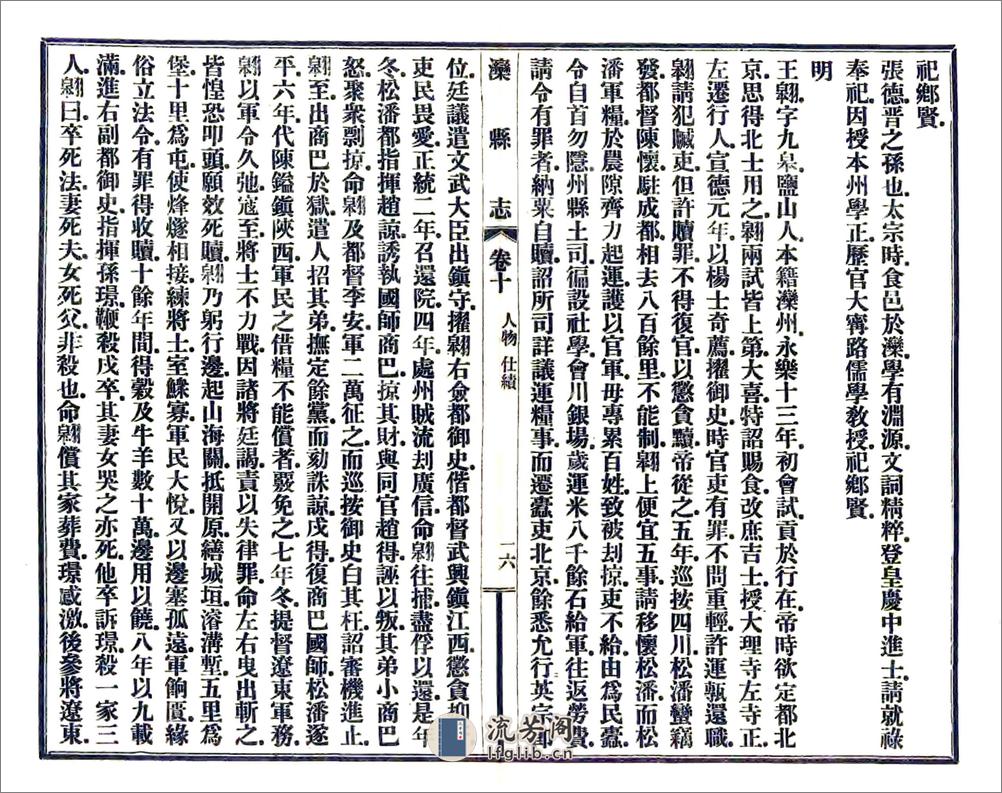 祀鄉賢
張德晋之孫也太宗時食邑於灤學有淵源文詞精粹登皇慶中進士請就祿
奉祀因授本州學正歷官大寧路儒學敎授祀鄉賢
明
王翱字九臯鹽山人本籍灤州永樂十三年初會試貢於行在帝時欲定都北
京思得北士用之翱兩試皆上第大喜特詔賜食改庶吉士授大理寺左寺正
左遷行人宣德元年以楊士奇薦擢御史時官吏有罪不問重輕許運甎還職
翱請犯贓吏但許贖罪不得復官以懲貪黷帝從之五年巡按四川松潘蠻竊
發都督陳懷駐成都相去八百餘里不能制翱上便宜五事請移懷松潘而松
潘軍糧於農隙齊力起運護以官軍毋專累百姓致被刦掠吏不給由爲民蠹
令自首勿隱州縣土司徧設社學會川銀場歲運米八千餘石給軍往返勞費
請令有罪者納粟自贖詔所司詳議運糧事而遷蠹吏北京餘悉允行英宗卽
灤縣志
卷十
人物 仕績
二六
位廷議遣文武大臣出鎭守擢翱右僉都御史偕都督武興鎭江西懲貪抑
吏民畏愛正統二年召還院四年處州賊流刦廣信命翱往捕盡俘以還是年
冬松潘都指揮趙諒誘執國師商巴掠其財與同官趙得誣以叛其弟小商巴
怒聚衆剽掠命翱及都督李安軍二萬征之而巡按御史白其枉詔審機進止
翱至出商巴於獄遣人招其弟撫定餘黨而劾誅諒戍得復商巴國師松潘遂
平六年代陳鎰鎭陝西軍民之借糧不能償者覈免之七年冬提督遼東軍務
翱以軍令久弛寇至將士不力戰因諸將廷謁責以失律罪命左右曳出斬之
皆惶恐叩頭願效死贖翱乃躬行邊起山海關抵開原繕城垣濬溝塹五里爲
堡十里爲屯使烽燧相接練將士室鰥寡軍民大悅又以邊塞孤遠軍餉匱緣
俗立法令有罪得收贖十餘年間得穀及牛羊數十萬邊用以饒八年以九載
滿進右副都御史指揮孫璟鞭殺戍卒其妻女哭之亦死他卒訴璟殺一家三
人翱曰卒死法妻死夫女死父非殺也命翱償其家葬費璟感激後參將遼東
流芳阁
lfglib.cn